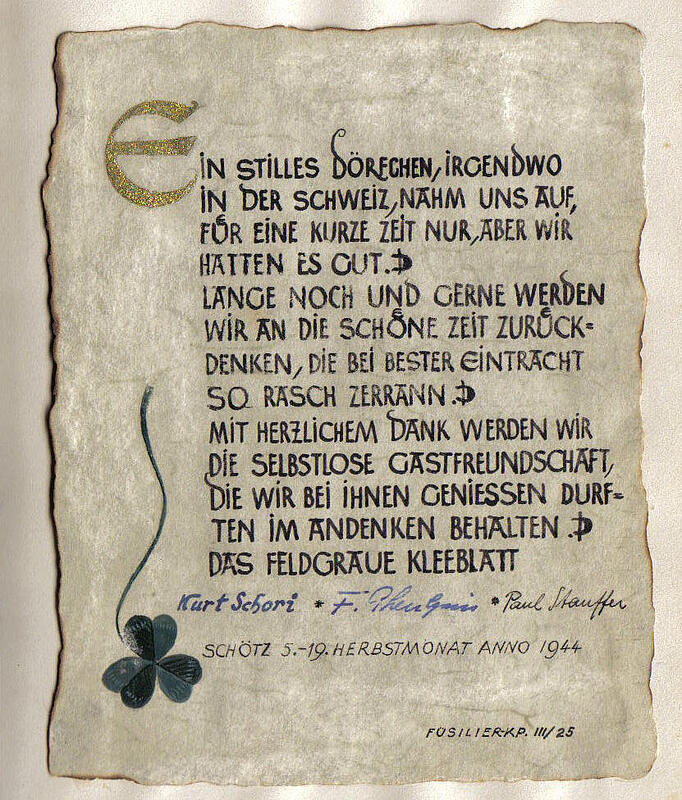 EIN STILLES DÖRFCHEN, IRGENDWO
IN DER SCHWEIZ, NAHM UNS AUF,
FÜR EINE KURZE ZEIT NUR, ABER WIR
HATTEN ES GUT.
LANGE NOCH UND GERNE WERDEN
WIR AN DIE SCHÖNE ZEIT ZURÜCK=
DENKEN, DIE BEI BESTER EINTRACHT
SO RASCH ZERRANN.
MIT HERZLICHEM DANK WERDEN WIR
DIE SELBSTLOSE GASTFREUNDSCHAFT,
DIE WIR BEI IHNEN GENIESSEN DURF=
TEN IM ANDENKEN BEHALTEN.
DAS FELDGRAUE KLEEBLATT
Kurt Schori * F. * Paul Stauffer
SCHÖTZ 5.-19. HERBSTMONAT ANNO 1944
FÜSILIER-KP. III/25